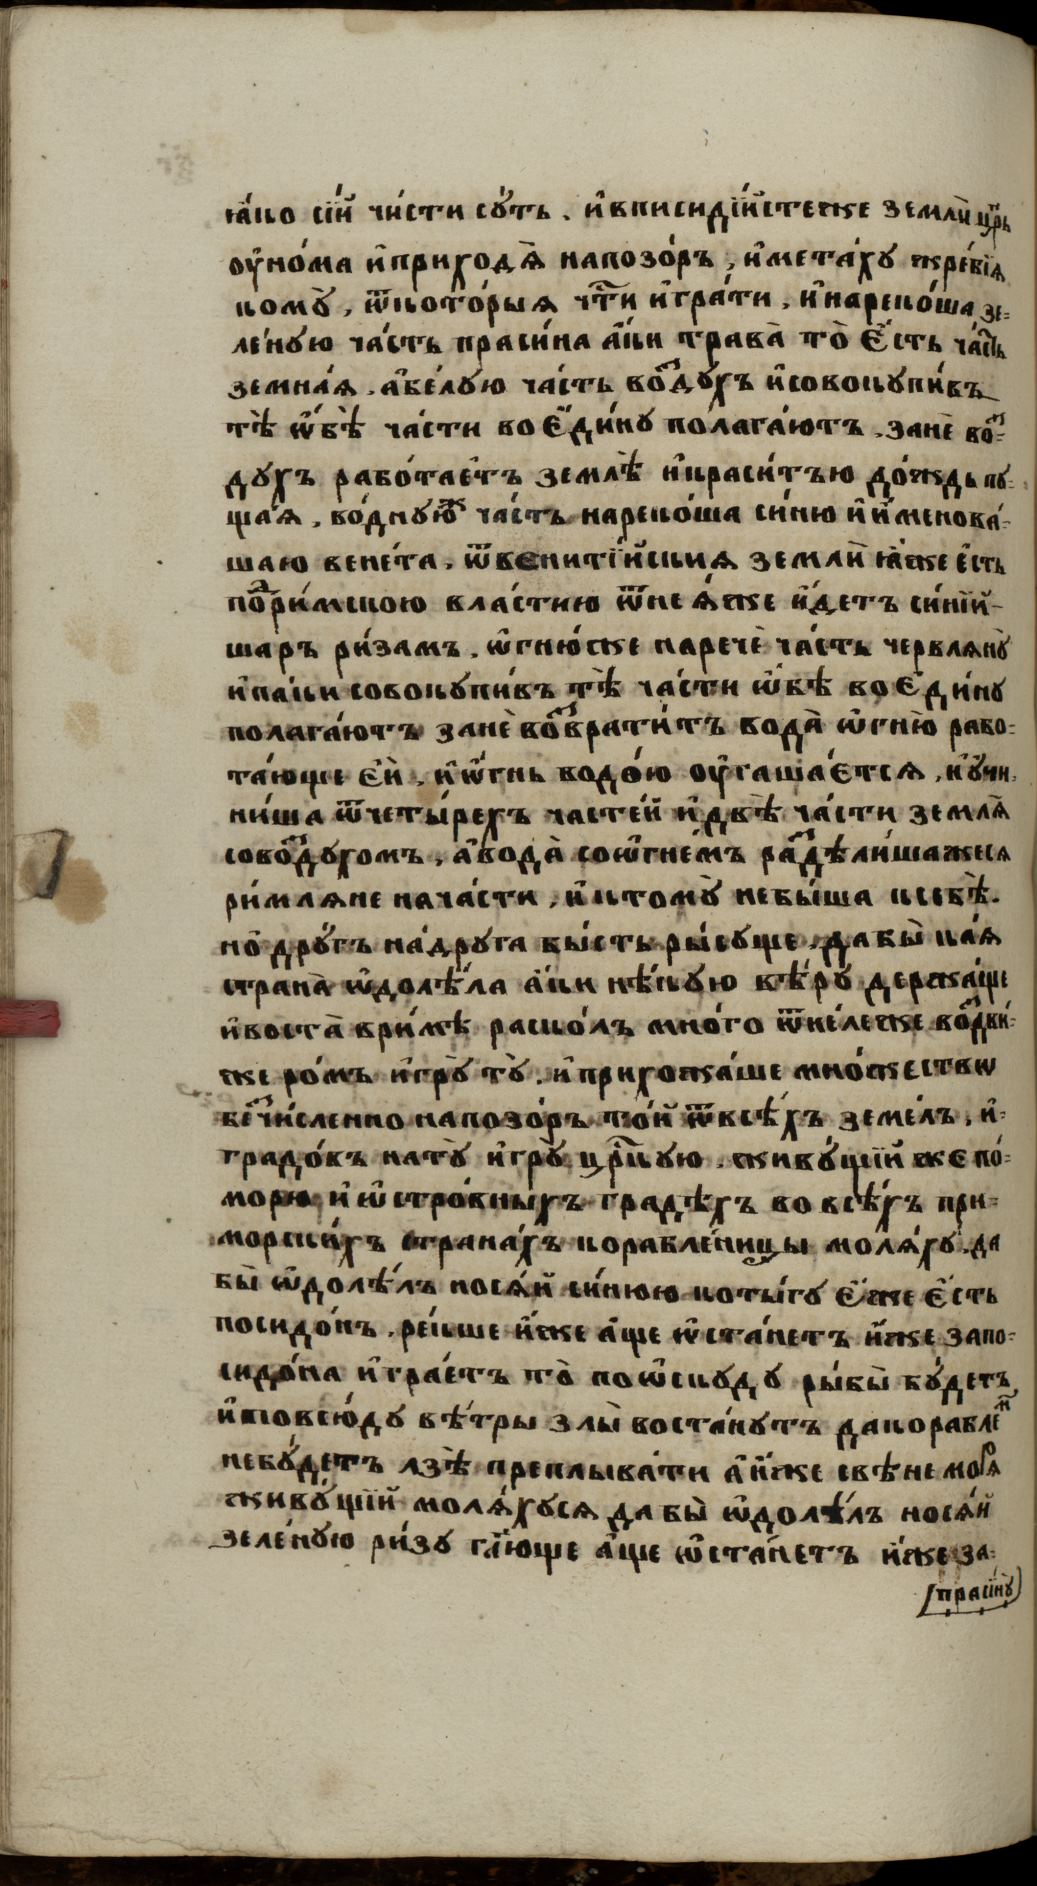 ꙗ҆́ко сїѝ чи́сти сꙋ́ть. и҆вписидїи́стеѣже землѝ цр҃ь
оу҆но́ма и҆приходѧ̀ напозо́ръ, и҆мета́хꙋ жре́бїѧ
комꙋ̀, ѿкото́рыѧ чтⷭ҇и и҆гра́ти, и҆нареко́ша зе-
ле́нꙋю ча́сть праси́на а҆́ки трава̀ то̀ є҆́сть ча́сть
земна́ѧ. а҆бе́лꙋю ча́сть воⷥ́дꙋхъ и҆совокꙋпи́въ
тѣ̀ ѡ҆́бѣ ча́сти во є҆ди́нꙋ полага́ютъ. занѐ воⷥ-
дꙋхъ рабо́таетъ землѣ̀ и҆краси́тъю до́ждь пꙋ-
ща́ѧ. во́днꙋюⷤ ча́сть нареко́ша си́ню и҆и҆менова́-
шаю вене́та. ѿвенитїи́скиѧ землѝ ꙗ҆́же є҆́сть
поⷣри́мскою вла́стию ѿнеѧ́же и҆́детъ си́нїй
шаръ ри́замъ. ѡ҆гню́же наречѐ ча́сть червлянꙋ̀
и҆па́ки совокꙋпи́въ тѣ̀ ча́сти ѡ҆́бѣ во є҆ди́нꙋ
полага́ютъ занѐ воⷥврати́тъ вода̀ ѡ҆гню̀ рабо-
та́юще є҆́й. и҆ѡ҆́гнь водо́ю оу҆гаша́етсѧ. и҆ꙋчи-
ни́ша ѿчеты́рехъ часте́й и҆двѣ̀ ча́сти землѧ̀
совоⷥ́дꙋхомъ, а҆вода̀ соѡ҆гне́мъ раⷥдѣли́шажесѧ
ри́млѧне начасти, и҆ктомꙋ̀ небы́ша ксебѣ̀.
но̀ дрꙋ́гъ на́дрꙋга бы́сть ры́сꙋще. дабы̀ ка́ѧ
страна̀ ѡ҆долѣ́ла а҆́ки нѣ́кꙋю вѣ́рꙋ держа́ще
и҆воста̀ ври́мѣ раско́лъ мно́го ѿне́леже воⷥдви́-
же ро́мъ и҆грꙋ̀ тꙋ̀. и҆прихожа́ше мно́жествѡ
беⷥчи́сленно напозо́ръ то́й ѿвсѣ́хъ земе́лъ, и҆-
градо́въ натꙋ̀ и҆грꙋ̀ црⷭ҇кꙋю. живꙋ́щїй же по́-
морю и҆ ѡ҆стро́вныхъ градѣ́хъ во всѣ́хъ при-
морски́хъ страна́хъ корабле́ницы молѧ́хꙋ. да
бы̀ ѡ҆долѣ́лъ носѧ́й си́нюю коты́гꙋ є҆́же є҆́сть
посидо́нъ. ре́кше и҆́же а҆́ще ѡ҆ста́нетъ и҆́же запо-
сидо́на и҆гра́етъ то̀ поѡ҆скꙋ́дꙋ ры́бы бꙋ́детъ
и҆повсю́дꙋ вѣ́тры злы̀ воста́нꙋтъ дакораблеⷨ҇
небꙋ́детъ лзѣ̀ преплыва́ти а҆и҆́же свѣне морѧ
живꙋ́щїй молѧ́хꙋсѧ дабы̀ ѡ҆долѣ́лъ носѧ́й
зеле́нꙋю ри́зꙋ гл҃юще а҆́ще ѡ҆ста́нетъ и҆́же за-
прасінꙋ̀